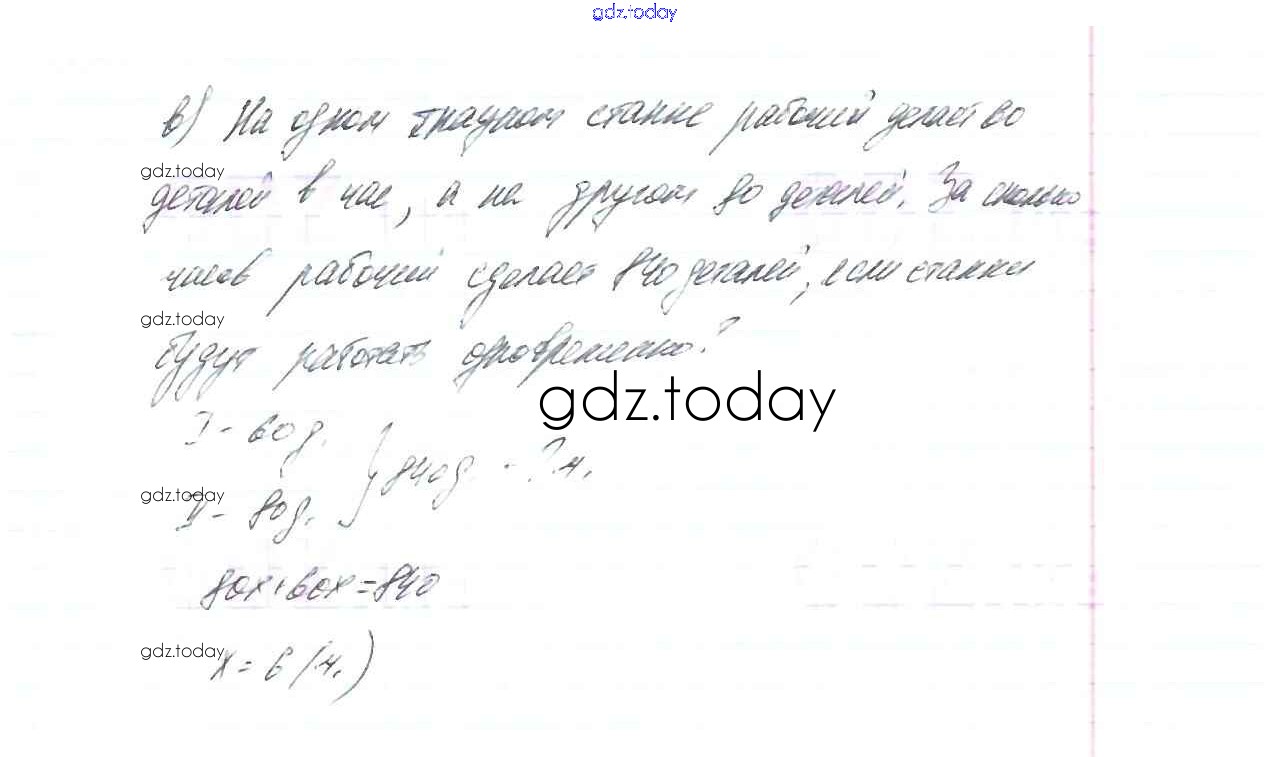 gdz.today
в) На одном станке рабочий делает 60
gdz.today
деталей в час, а на другом 80 деталей. За сколько
часов рабочий сделает 840 деталей, если станки
gdz.today
будут работать одновременно?
gdz.today
I - 60 д.
} 840 д. - ? ч.
gdz.today
II - 80 д.
80x+60x=840
gdz.today
x = 6 (ч.)